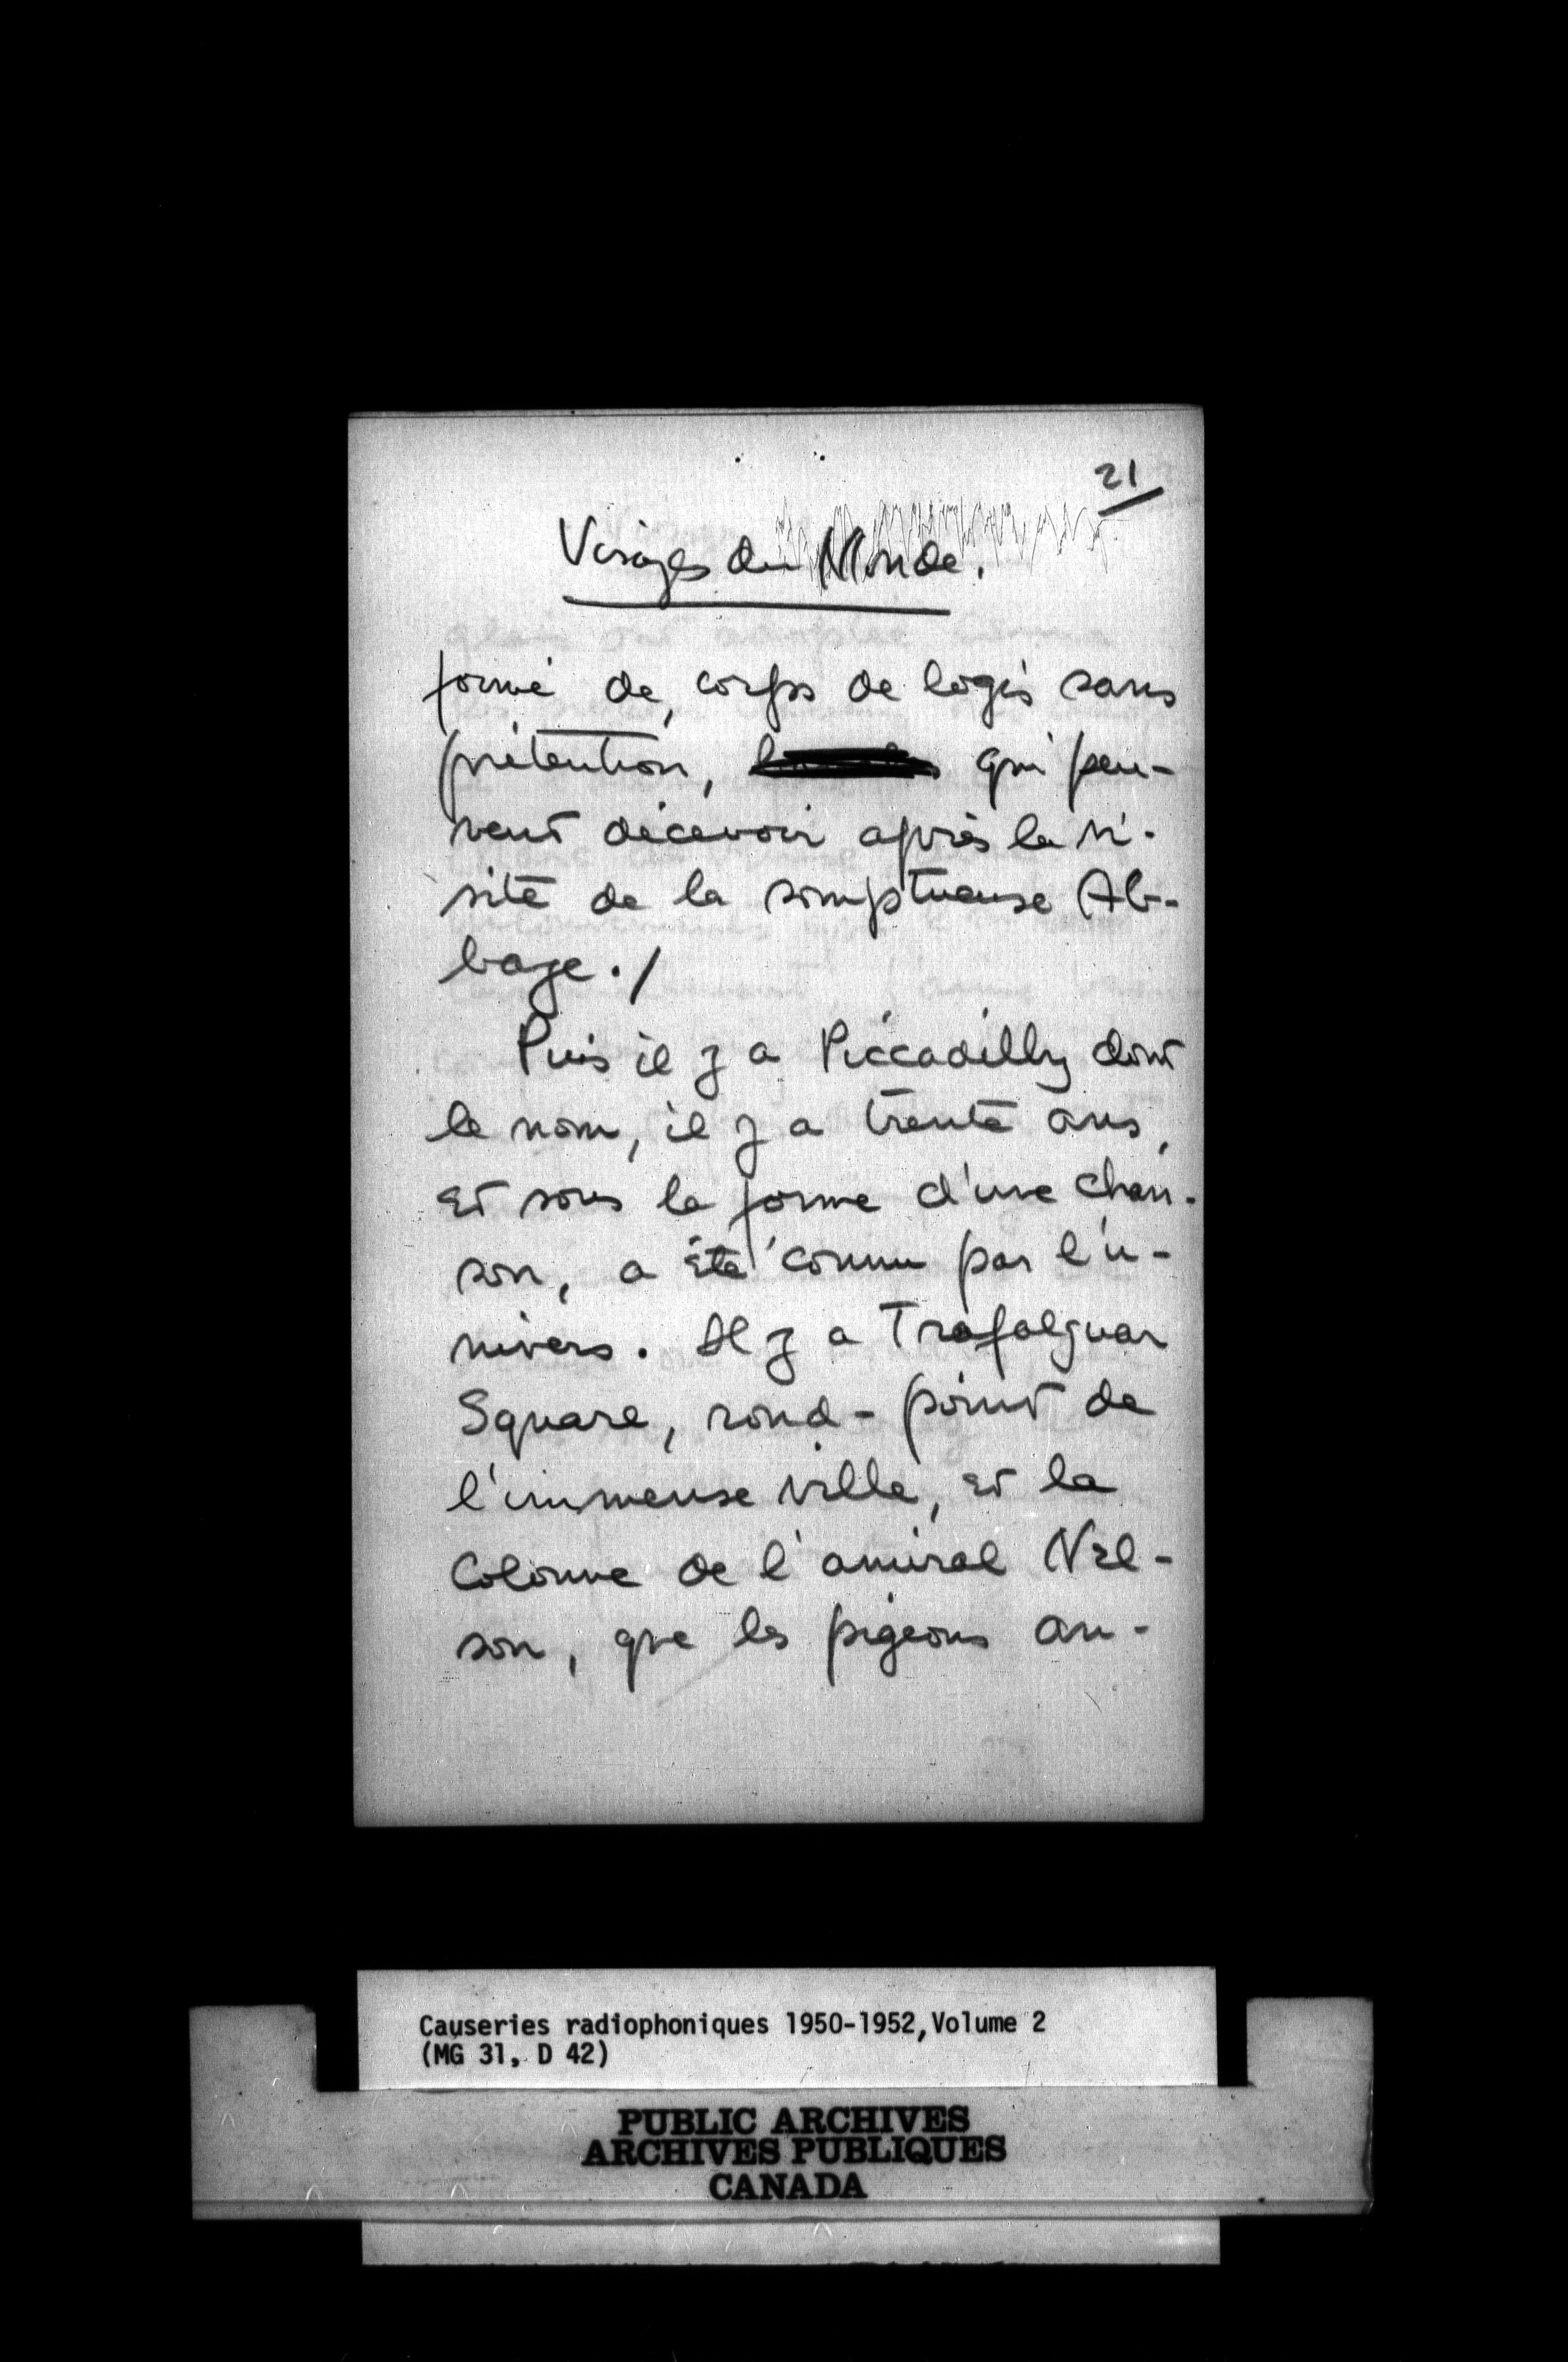 21
Visages du Monde.
formé de, corps de logis sans
prétention, qui peu-
vent décevoir après la vi-
site de la somptueuse Ab-
baye./
Puis il y a Piccadilly dont
le nom, il y a trente ans,
et sous la forme d'une chan-
son, a été connu par l'u-
nivers. Il y a Trafalguar
Square, rond-point de
l'immense ville, et la
Colonne de l'amiral Nel-
son, que les pigeons au-
Causeries radiophoniques 1950-1952, Volume 2
(MG 31, D 42)
PUBLIC ARCHIVES
ARCHIVES PUBLIQUES
CANADA